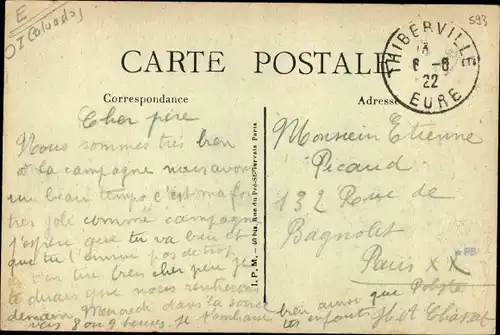 E
(Calvados)
593
CARTE POSTALE
THIBERVILLE
6-6
22
EURE
Correspondance
Adresse
Cher père
Nous sommes très bien
à la campagne nous avons
un beau tempo c'est ma foi
tres joli comme campagne
J'espère que tu va bien et
que tu t'ennui pas de trop
tres bien cher père je
te dirais que nous rentrerons
demain Mercredi dans la soirée
vers 8 ou 9 heures je t'embrasse bien ainsi que
les enfants
I. P. M. — 60 bis, Rue du Pré-St-Gervais Paris
Monsieur Etienne
Picaud
132 Rue de
Bagnolet
Paris XX
*PB